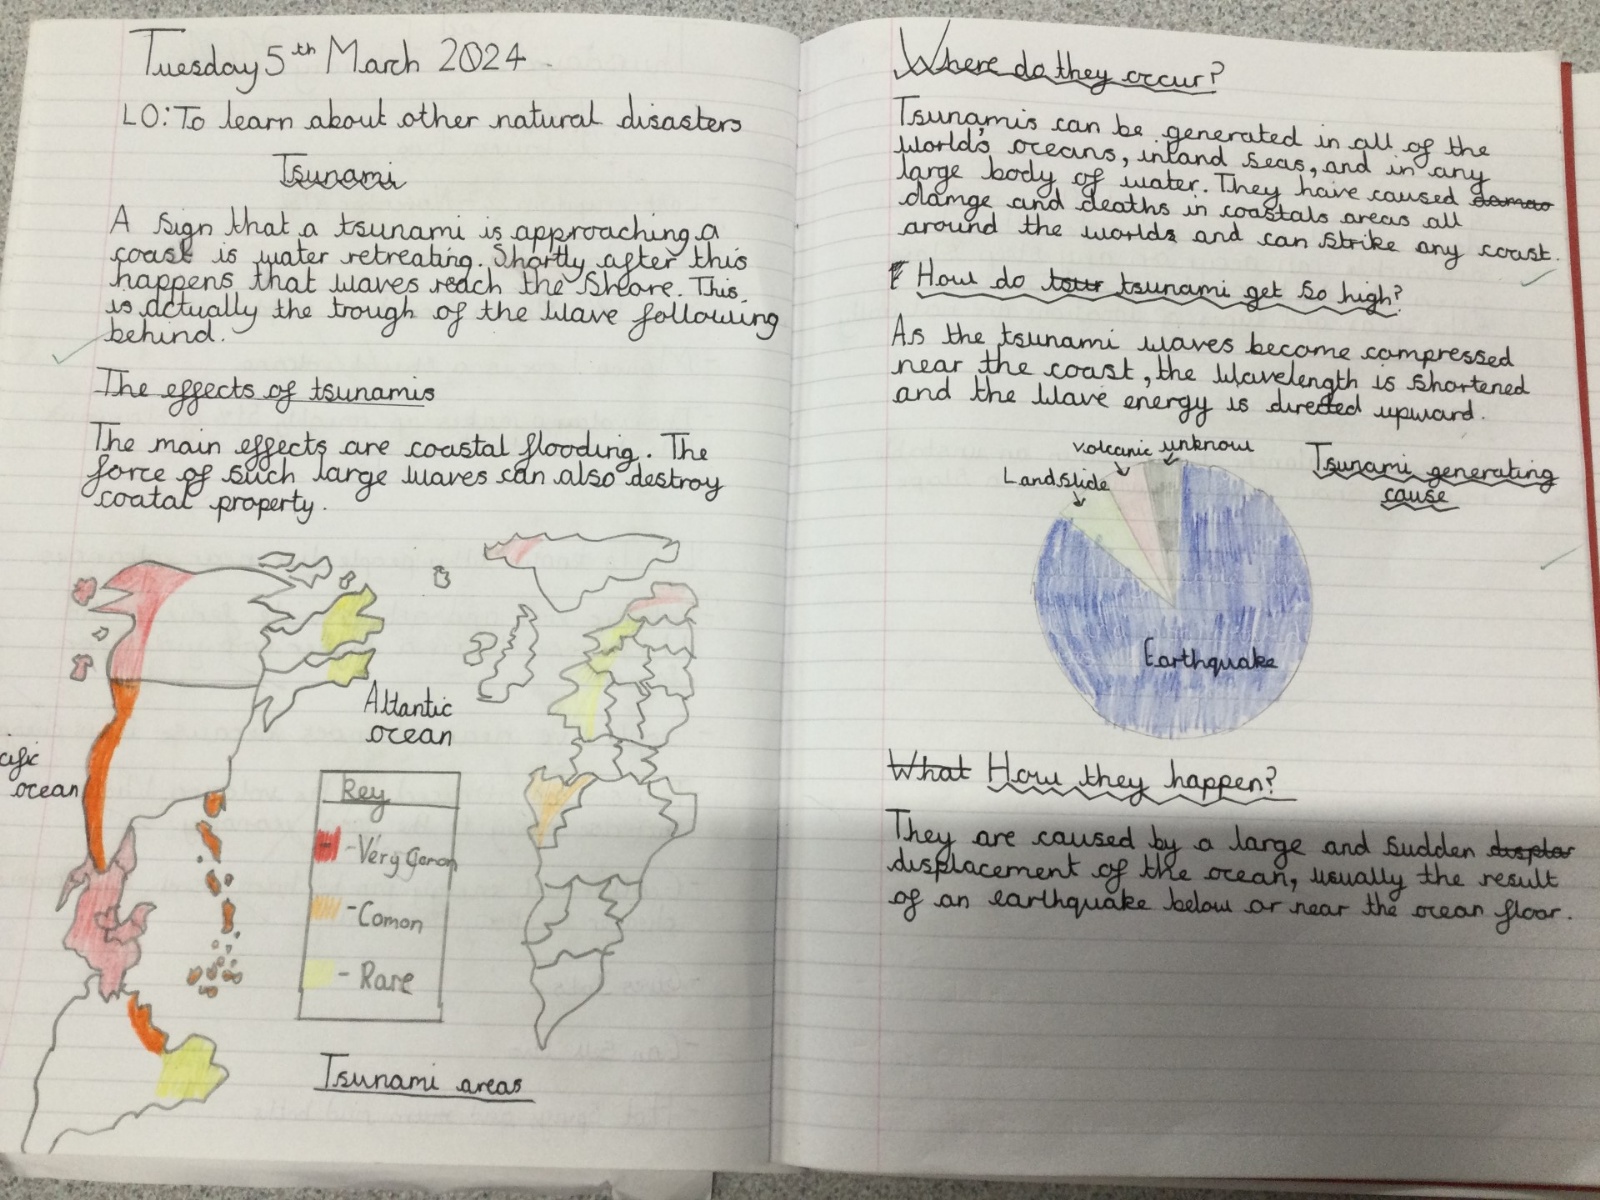 Tuesday 5th March 2024
LO: To learn about other natural disasters
Tsunami
A sign that a tsunami is approaching a
coast is water retreating. Shortly after this
happens that waves reach the Shore. This
is actually the trough of the wave following
behind.
The effects of tsunamis
The main effects are coastal flooding. The
force of such large waves can also destroy
coatal property.
Atlantic
ocean
cific
ocean
Key
- Very Comon
- Comon
- Rare
Tsunami areas
Where do they occur?
Tsunamis can be generated in all of the
world's oceans, inland seas, and in any
large body of water. They have caused damao
damge and deaths in coastals areas all
around the worlds and can strike any coast.
How do tour tsunami get so high?
As the tsunami waves become compressed
near the coast, the wavelength is shortened
and the wave energy is directed upward.
volcanic unknow
Landslide
Tsunami generating
cause
Earthquake
What How they happen?
They are caused by a large and sudden displar
displacement of the ocean, usually the result
of an earthquake below or near the ocean floor.